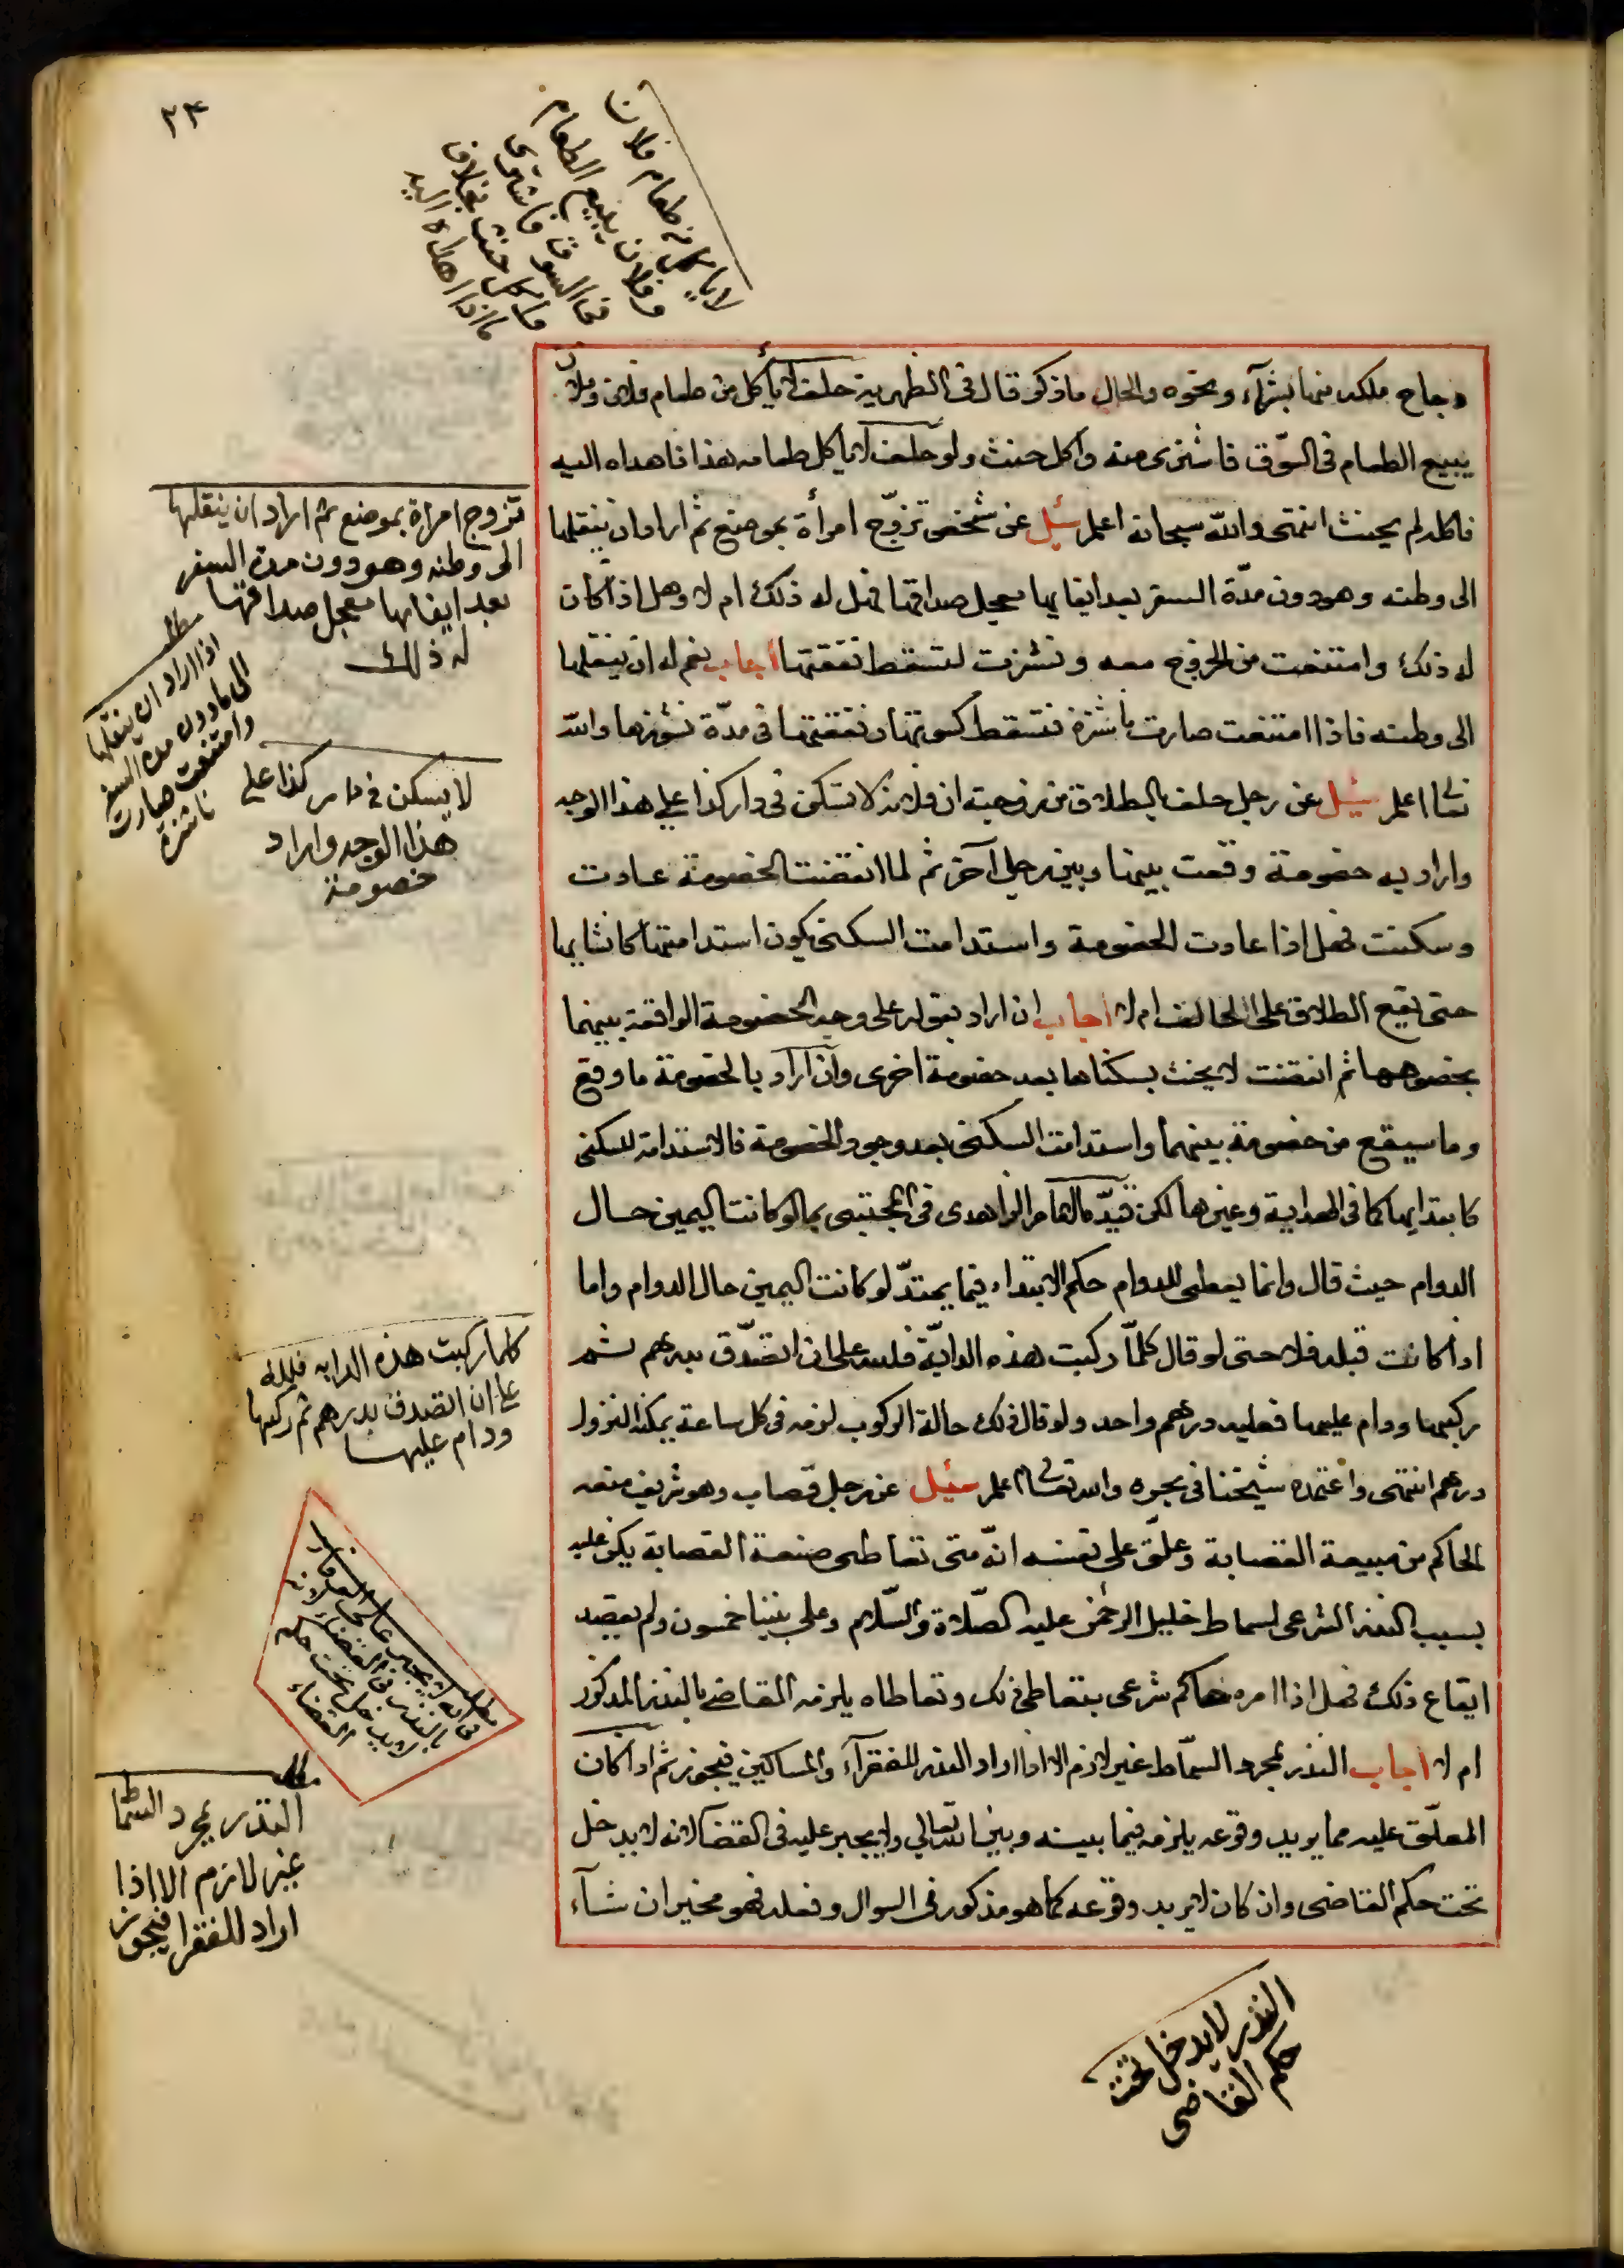 ٢٤
لا ياكل من طعام فلان
وفلان يبيع الطعام
في السوق فاشترى
واكل حنث بخلاف
ما اذا اهداه اليه
دجاج ملكه منها بشرآء ونحوه والحال ما ذكر قال في الظهرية حلف لا يأكل من طعام فلان وفلان
يبيع الطعام في السّوق فاشترى منه واكل حنث ولو حلف لا ياكل طعامه هذا فاهداه اليه
فاكله لم يحنث انتهى والله سبحانه اعلم سئل عن شخص تزوّج امرأة بموضع ثم اراد ان ينقلها
الى وطنه وهو دون مدّة السفر بعد ايفايها معجل صداقها فهل له ذلك ام لا وهل اذا كان
له ذلك وامتنعت من الخروج معه ونشزت لتسقط نفقتها اجاب نعم له ان ينقلها
الى وطنه فاذا امتنعت صارت ناشزة فتسقط كسوتها ونفقتها في مدّة نشوزها والله
تعالى اعلم سئل عن رجل حلف بالطلاق من زوجته ان فلانة لا تسكن في دار كذا على هذا الوجه
واراد به خصومة وقعت بينها وبين رجل آخر ثم لما انقضت الخصومة عادت
وسكنت فهل اذا عادت الخصومة واستدامت السكنى يكون استدامتها كانشايها
حتى يقع الطلاق على الحالف ام لا اجاب ان اراد بقوله على وجه الخصومة الواقعة بينهما
بخصوصها ثم انقضت لا يحنث بسكناها بعد خصومة اخرى وان اراد بالخصومة ما وقع
وما سيقع من خصومة بينهما واستدامت السكنى بعد وجود الخصومة فالاستدامة للسكنى
كابتدايها كما في الهداية وغيرها لكن قيّده الامام الزاهدى في المجتبى بما لو كانت اليمين حال
الدوام حيث قال وانما يعطى للدوام حكم الابتداء فيما يمتدّ لو كانت اليمين حال الدوام واما
اذا كانت قبله فلا حتى لو قال كلمّا ركبت هذه الدابّة فلله على ان اتصّدق بدرهم ثم
ركبها ودام عليها فعليه درهم واحد ولو قال ذلك حالة الركوب لزمه في كل ساعة يمكنه النزول
درهم انتهى واعتمده شيخنا في بحره والله تعالى اعلم سئل عن رجل قصاب وهو شريف منعه
الحاكم من مبيعة القصابة وعلّق على نفسه انّه متى تعاطى صنعة القصابة يكن عليه
بسبب النذر الشرعى لسماط خليل الرحمن عليه الصّلاة والسّلام وعلى نبينا خمسون ولم يقصد
ايقاع ذلك فهل اذا امره حاكم شرعى بتعاطى ذلك وتعاطاه يلزمه القاضى بالنذر المذكور
ام لا اجاب النذر لمجرد السمّاط غير لازم الا اذا اراد النذر للفقرآء والمساكين فيجوز ثم اذا كان
المعلّق عليه مما يريد وقوعه يلزمه فيما بينه وبين الله تعالى ولا يجبر عليه في القضا لانه لا يدخل
تحت حكم القاضى وان كان لا يريد وقوعه كما هو مذكور في السوال وفعله فهو مخير ان شآء
تزوج امراة بموضع ثم اراد ان ينقلها
الى وطنه وهو دون مدة السفر
بعد ايفايها معجل صداقها
له ذلك
مطلب
اذا اراد ان ينقلها
الى ما دون مدة السفر
وامتنعت صارت
ناشزة
لا يسكن في دار كذا على
هذا الوجه واراد
خصومة
كلما ركبت هذه الدابه فلله
على ان اتصدق بدرهم ثم ركبها
ودام عليها
مطلب
لا يجبر على الوفاء
بالنذر في القضاء لانه
لا يدخل تحت حكم
القضاء
مطلب
النذر لمجرد السما
غير لازم الا اذا
اراد للفقرا فيجوز
النذر لا يدخل تحت
حكم القاضى